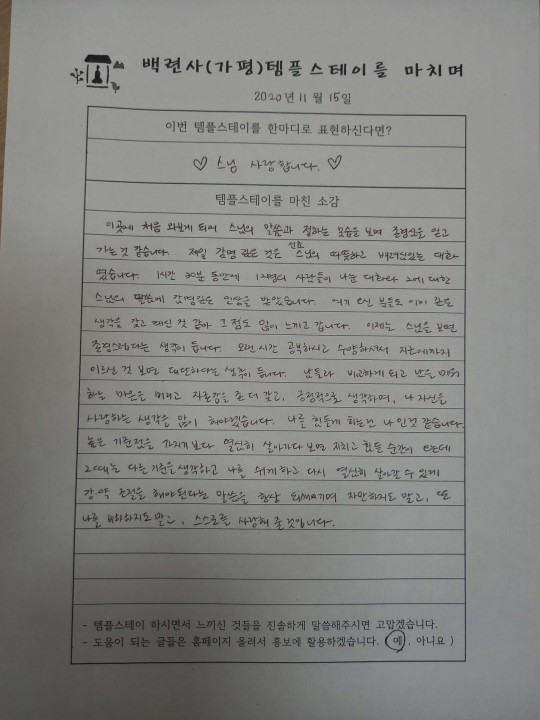 백련사(가평)템플스테이를 마치며
2020년 11월 15일
이번 템플스테이를 한마디로 표현하신다면?
♡ 스님 사랑합니다. ♡
템플스테이를 마친 소감
이곳에 처음 와보게 되어 스님의 말씀과 절하는 모습을 보며 존경심을 얻고
가는 것 같습니다. 제일 감명 깊은 것은 선효 스님의 따뜻하고 배려심있는 대화
였습니다. 1시간 30분 동안에 12명의 사람들이 나눈 대화와 그에 대한
스님의 말씀에 감명깊은 인상을 받았습니다. 여기 오신 분들도 이미 같은
생각을 갖고 계신 것 같아 그 점도 많이 느끼고 갑니다. 이제는 스님을 보면
존경스럽다는 생각이 듭니다. 오랜 시간 공부하시고 수양하셔서 지금에까지
이르신 것 보면 대단하다는 생각이 듭니다. 남들과 비교하게 되고 남을 미워
하는 마음을 버리고 자존감을 좀 더 갖고, 긍정적으로 생각하며, 나 자신을
사랑하는 생각을 많이 해야겠습니다. 나를 힘들게 하는건 나인것 같습니다.
높은 기준점을 가지기 보다 열심히 살아가다 보면 지치고 힘든 순간이 오는데
그때는 다른 기준을 생각하고 나를 쉬게 하고 다시 열심히 살아갈 수 있게
강·약 조절을 해야된다는 말씀을 항상 되새기며 자만하지도 말고, 또
나를 비하하지도 말고, 스스로를 사랑해 줄 것입니다.
- 템플스테이 하시면서 느끼신 것들을 진솔하게 말씀해주시면 고맙겠습니다.
- 도움이 되는 글들은 홈페이지 올려서 홍보에 활용하겠습니다. ( 예 , 아니요 )